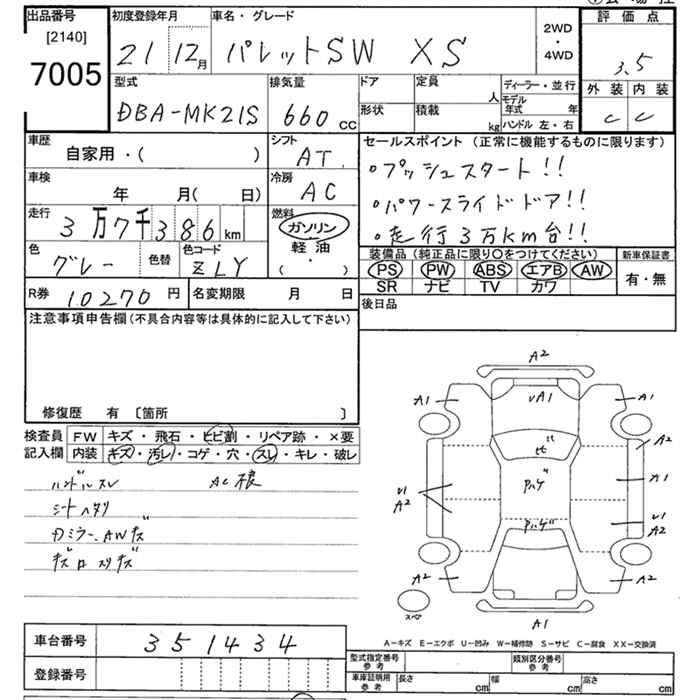 出品番号 初度登録年月 車名・グレード 2WD・4WD 評価点
[2140]
7005
21 12月 パレットSW XS
3.5
型式 排気量 ドア 定員 人 ディーラー・並行 外装 内装
DBA-MK21S 660 cc
モデル年式 年
形状 積載 kg ハンドル 左・右
C C
車歴 シフト セールスポイント (正常に機能するものに限ります)
自家用・( ) AT
・プッシュスタート!!
車検 冷房
年 月( 日) AC
・パワースライドドア!!
走行 燃料
3万7千386km ガソリン
・走行3万km台!!
軽油
・( )
色 色替 色コード
グレー ZLY
装備品 (純正品に限り○をつけてください) 新車保証書
PS PW ABS エアB AW 有・無
SR ナビ TV カワ
R券 10270円 名変期限 月 日
後日品
注意事項申告欄(不具合内容等は具体的に記入して下さい)
修復歴 有 〔箇所 〕
検査員記入欄 FW キズ・飛石・ヒビ割・リペア跡・×要
内装 キズ・汚レ・コゲ・穴・スレ・キレ・破レ
ハンドルスレ AC様
シートヘタリ
カミラー、AWキズ
A2
A1 UA1 A1
A2
ヒビ
A1
U1 A2 ハゲ
ハゲ U1 A2
A2 A2
スペア A1
A-キズ E-エクボ U-凹み W-補修跡 S-サビ C-腐食 XX-交換済
車台番号 351434
登録番号
型式指定番号 参考 類別区分番号 参考
車庫証明用 参考 長さ cm 幅 cm 高さ cm